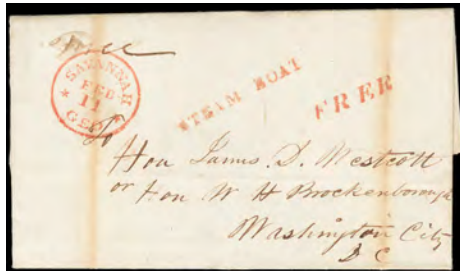 Free
SAVANNAH
FEB
11
GEO.
STEAM BOAT
FREE
To
Hon James. D. Westcott
or Hon W H Brockenborough
Washington City
D C